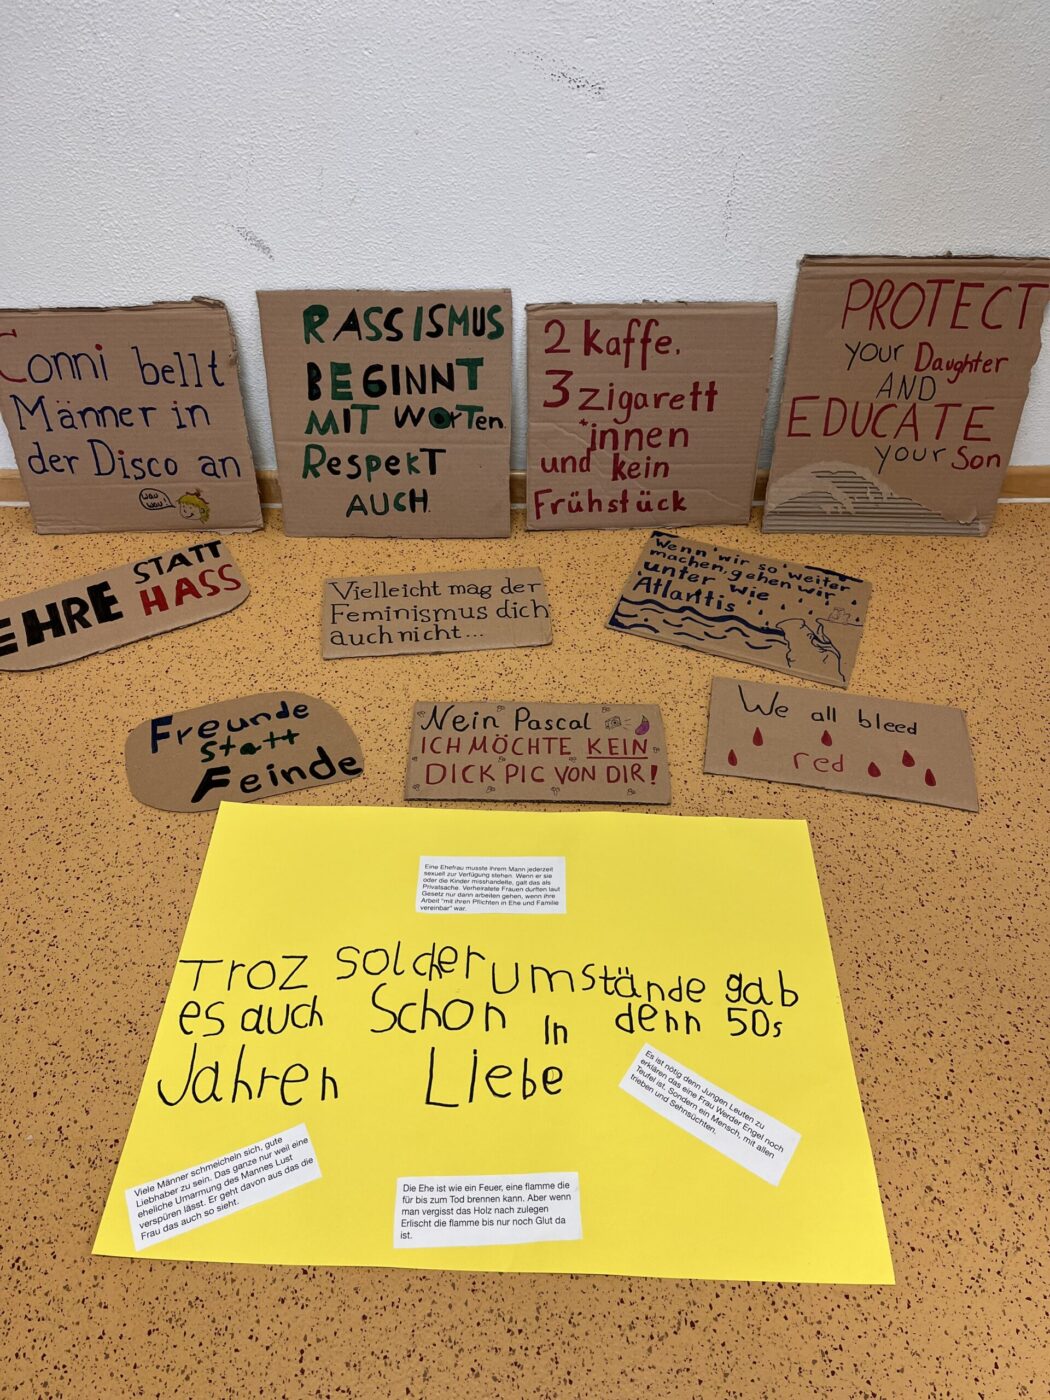 Conni bellt
Männer in
der Disco an
wau
wau!
RASSISMUS
BEGINNT
MIT WORTEN.
RESPEKT
AUCH.
2 Kaffe,
3 zigarett
*innen
und kein
Frühstück
PROTECT
your Daughter
AND
EDUCATE
your Son
EHRE STATT
HASS
Vielleicht mag der
Feminismus dich
auch nicht...
Wenn wir so weiter
machen, gehen wir
unter wie
Atlantis
Freunde
statt
Feinde
Nein Pascal
ICH MÖCHTE KEIN
DICK PIC VON DIR!
We all bleed
red
Eine Ehefrau musste ihrem Mann jederzeit
sexuell zur Verfügung stehen. Wenn er sie
oder die Kinder misshandelte, galt das als
Privatsache. Verheiratete Frauen durften laut
Gesetz nur dann arbeiten gehen, wenn ihre
Arbeit "mit ihren Pflichten in Ehe und Familie
vereinbar" war.
Troz solcher umstände gab
es auch Schon in denn 50s
Jahren Liebe
Es ist nötig denn Jungen Leuten zu
erklären das eine Frau Werder Engel noch
Teufel ist. Sondern ein Mensch, mit allen
trieben und Sehnsüchten.
Viele Männer schmeicheln sich, gute
Liebhaber zu sein. Das ganze nur weil eine
eheliche Umarmung des Mannes Lust
verspüren lässt. Er geht davon aus das die
Frau das auch so sieht.
Die Ehe ist wie ein Feuer, eine flamme die
für bis zum Tod brennen kann. Aber wenn
man vergisst das Holz nach zulegen
Erlischt die flamme bis nur noch Glut da
ist.